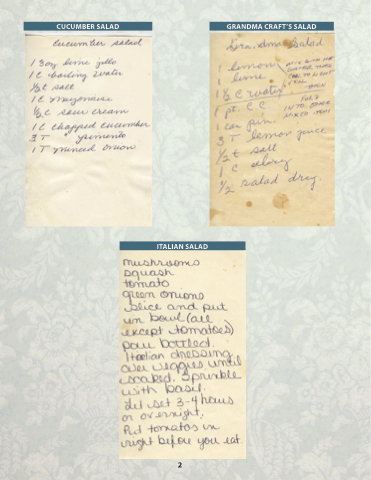 CUCUMBER SALAD
Cucumber Salad
1 Box lime jello
1 C boiling water
1 C mayonnaise
1/2 C sour cream
1 C chopped cucumber
3 T pimento
1 T minced onion
GRANDMA CRAFT'S SALAD
Grandma Salad
1 lemon
1 lime
1 pt. C.C.
1 can pin.
3 T lemon juice
1/2 t salt
1 C celery
1/2 salad drsg.
ITALIAN SALAD
mushrooms
squash
tomato
green onions
Slice and put
in bowl (all
except tomatoes)
pour bottled
Italian dressing
over veggies until
soaked. Sprinkle
with basil.
Let set 3-4 hours
or overnight.
Put tomatos in
right before you eat.
2